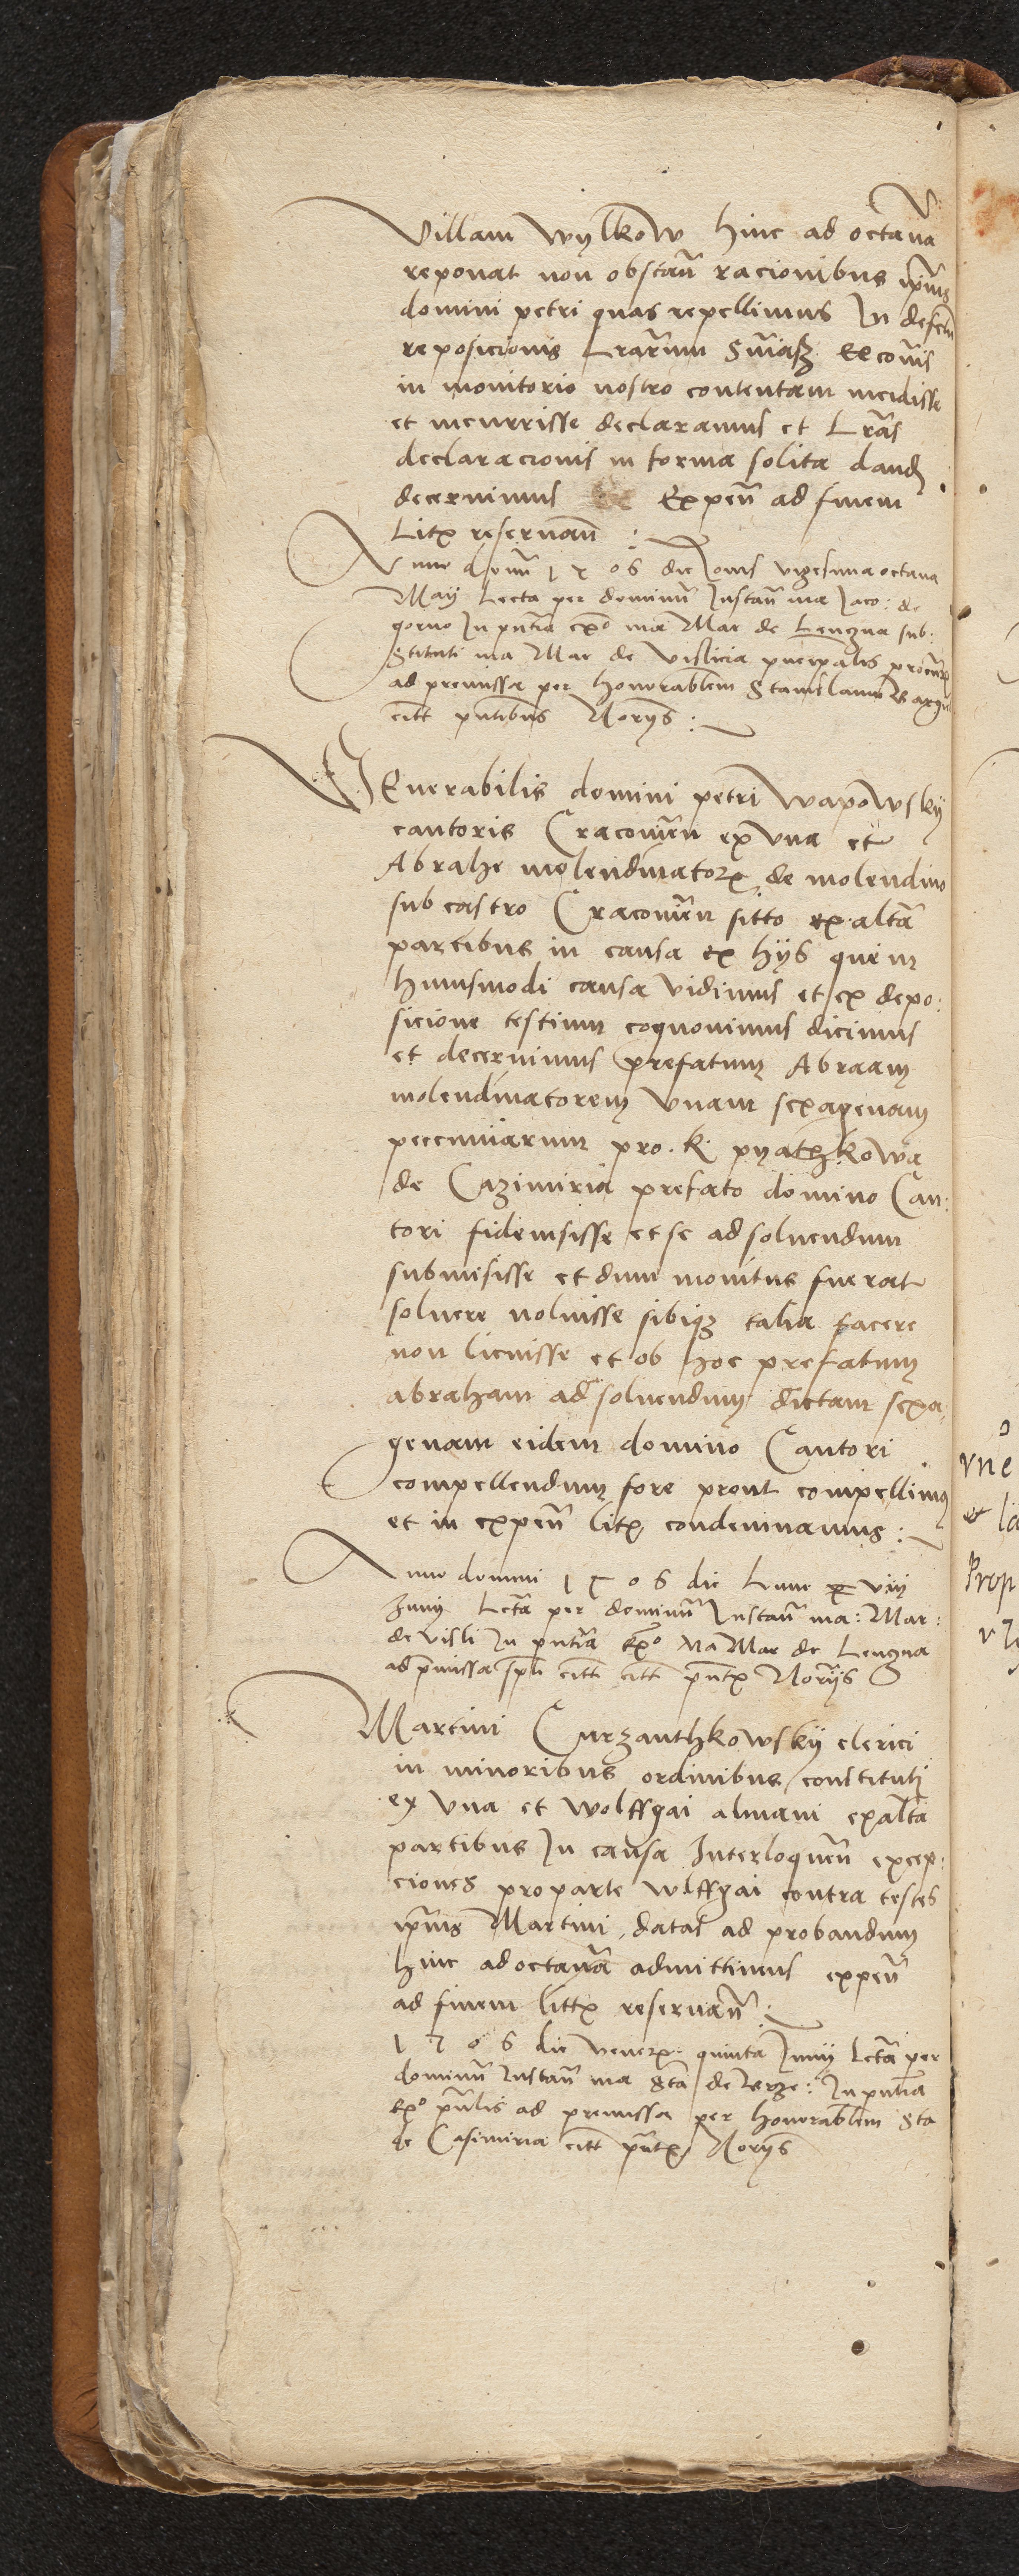 Villam Wylkow hinc ad octaua
reponat non obstañ racionibus ipius
domini petri quas repellimus In defectu
reposicionis Lrarum snias et cois
in monitorio nostro contentam incidisse
et incurrisse declaramus et Lras
declaracionis in forma solita dand
decernimus Expeñ ad finem
Litx reseruañ :
Anno domi 1506 die Iouis vigesima octaua
May Lecta per dominũ Instañ ma Jaco: de
gorno In pntia exº ma Mar de Lengna sub:
stituti ma Mar de vislicia principalis procur
ad premissa per honorablem Stanislaum
citt pntibus Norijs :
VEnerabilis domini petri Wapowskij
cantoris Cracouieñ ex vna et
Abrahe molendinatorx de molendino
sub castro Cracouieñ sitto ex alta
partibus in causa ex hijs que in
huiusmodi causa vidimus et ex depo:
sicione testium cognouimus dicimus
et decernimus prefatum Abraam
molendinatorem vnam sexagenam
peccuniarum pro . K . pyathkowa
de Cazimiria prefato domino Can:
tori fideiussisse et se ad soluendum
submisisse et dum monitus fuerat
soluere noluisse sibique talia facere
non licuisse et ob hoc prefatum
abraham ad soluendum dictam sexa
genam eidem domino Cantori
compellendum fore prout compellimus
et in expeñ litx condemnamus :
Anno domini 1506 die Lune viij
Junij Lecta per dominũ Instañ ma: Mar:
de visli In pntia exº Ma Mar de Lengna
ad pmissa citt pntx Norijs
Martini Curzanthkowskij clerici
in minoribus ordinibus constituti
ex vna et wolffgai almani ex alta
partibus In causa Interloqueñ excep:
ciones pro parte wlffgai contra testes
ipius Martini datas ad probandum
hinc ad octaua admittimus expeñ
ad finem littx reseruañ :
1506 die venerx quinta Junij Lecta per
dominũ Instañ ma sta de In pntia
exº pnlis ad premissa per honorablem sta
de Casimiria citt pntx Norijs
vne
et la
Prop